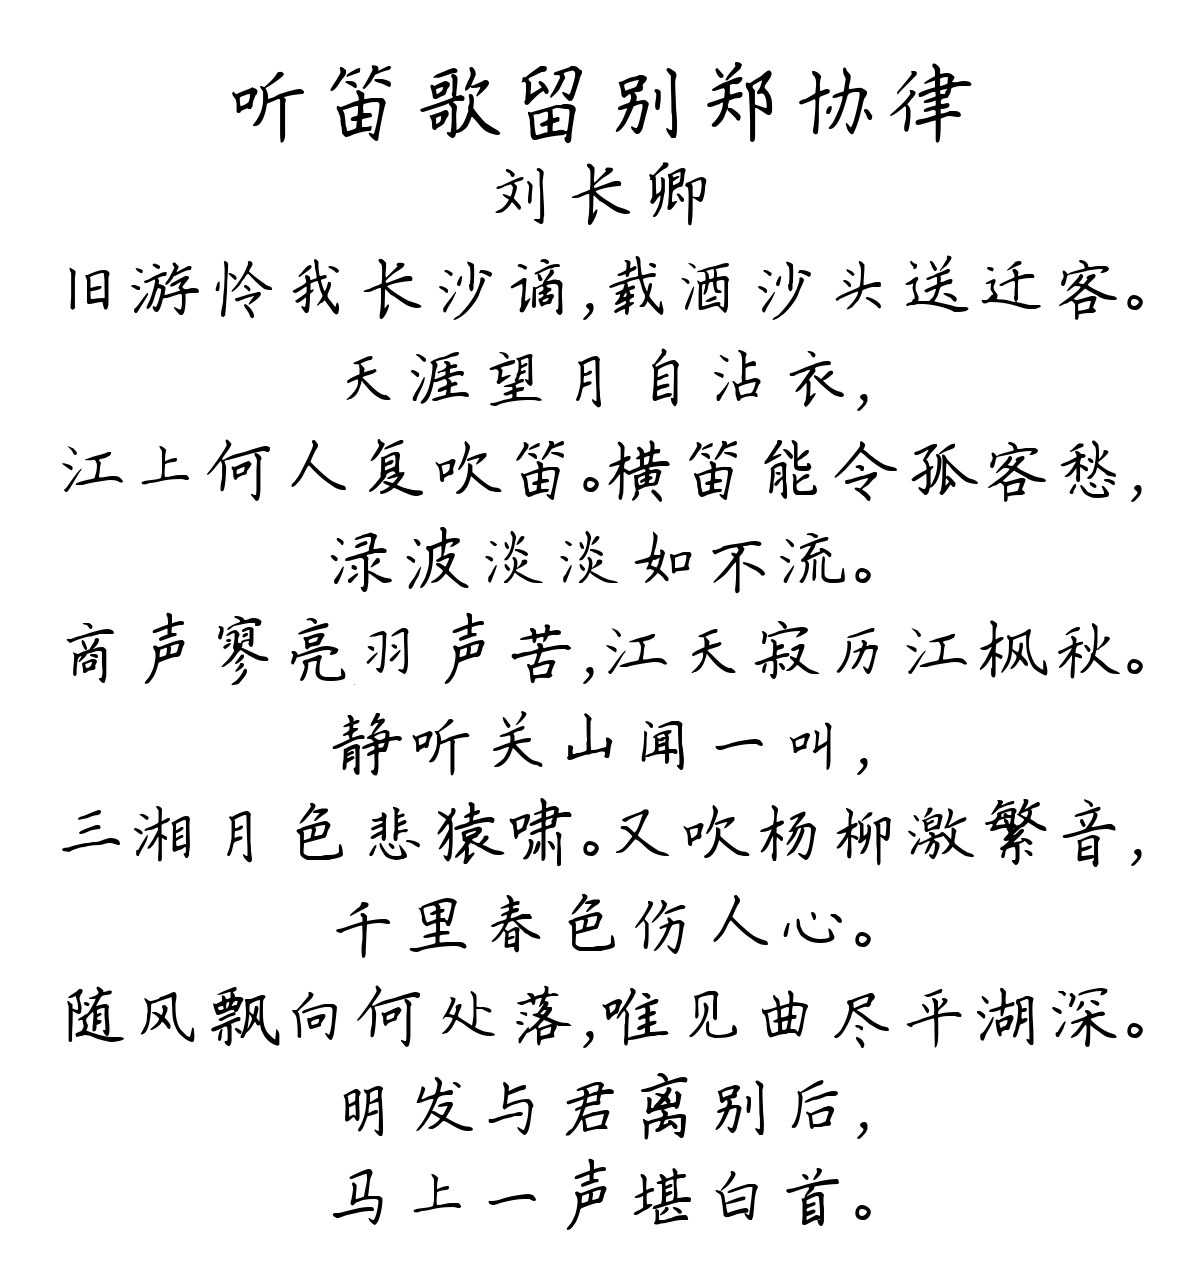 听笛歌留别郑协律
刘长卿
旧游怜我长沙谪,载酒沙头送迁客。
天涯望月自沾衣,
江上何人复吹笛。横笛能令孤客愁,
渌波淡淡如不流。
商声寥亮羽声苦,江天寂历江枫秋。
静听关山闻一叫,
三湘月色悲猿啸。又吹杨柳激繁音,
千里春色伤人心。
随风飘向何处落,唯见曲尽平湖深。
明发与君离别后,
马上一声堪白首。